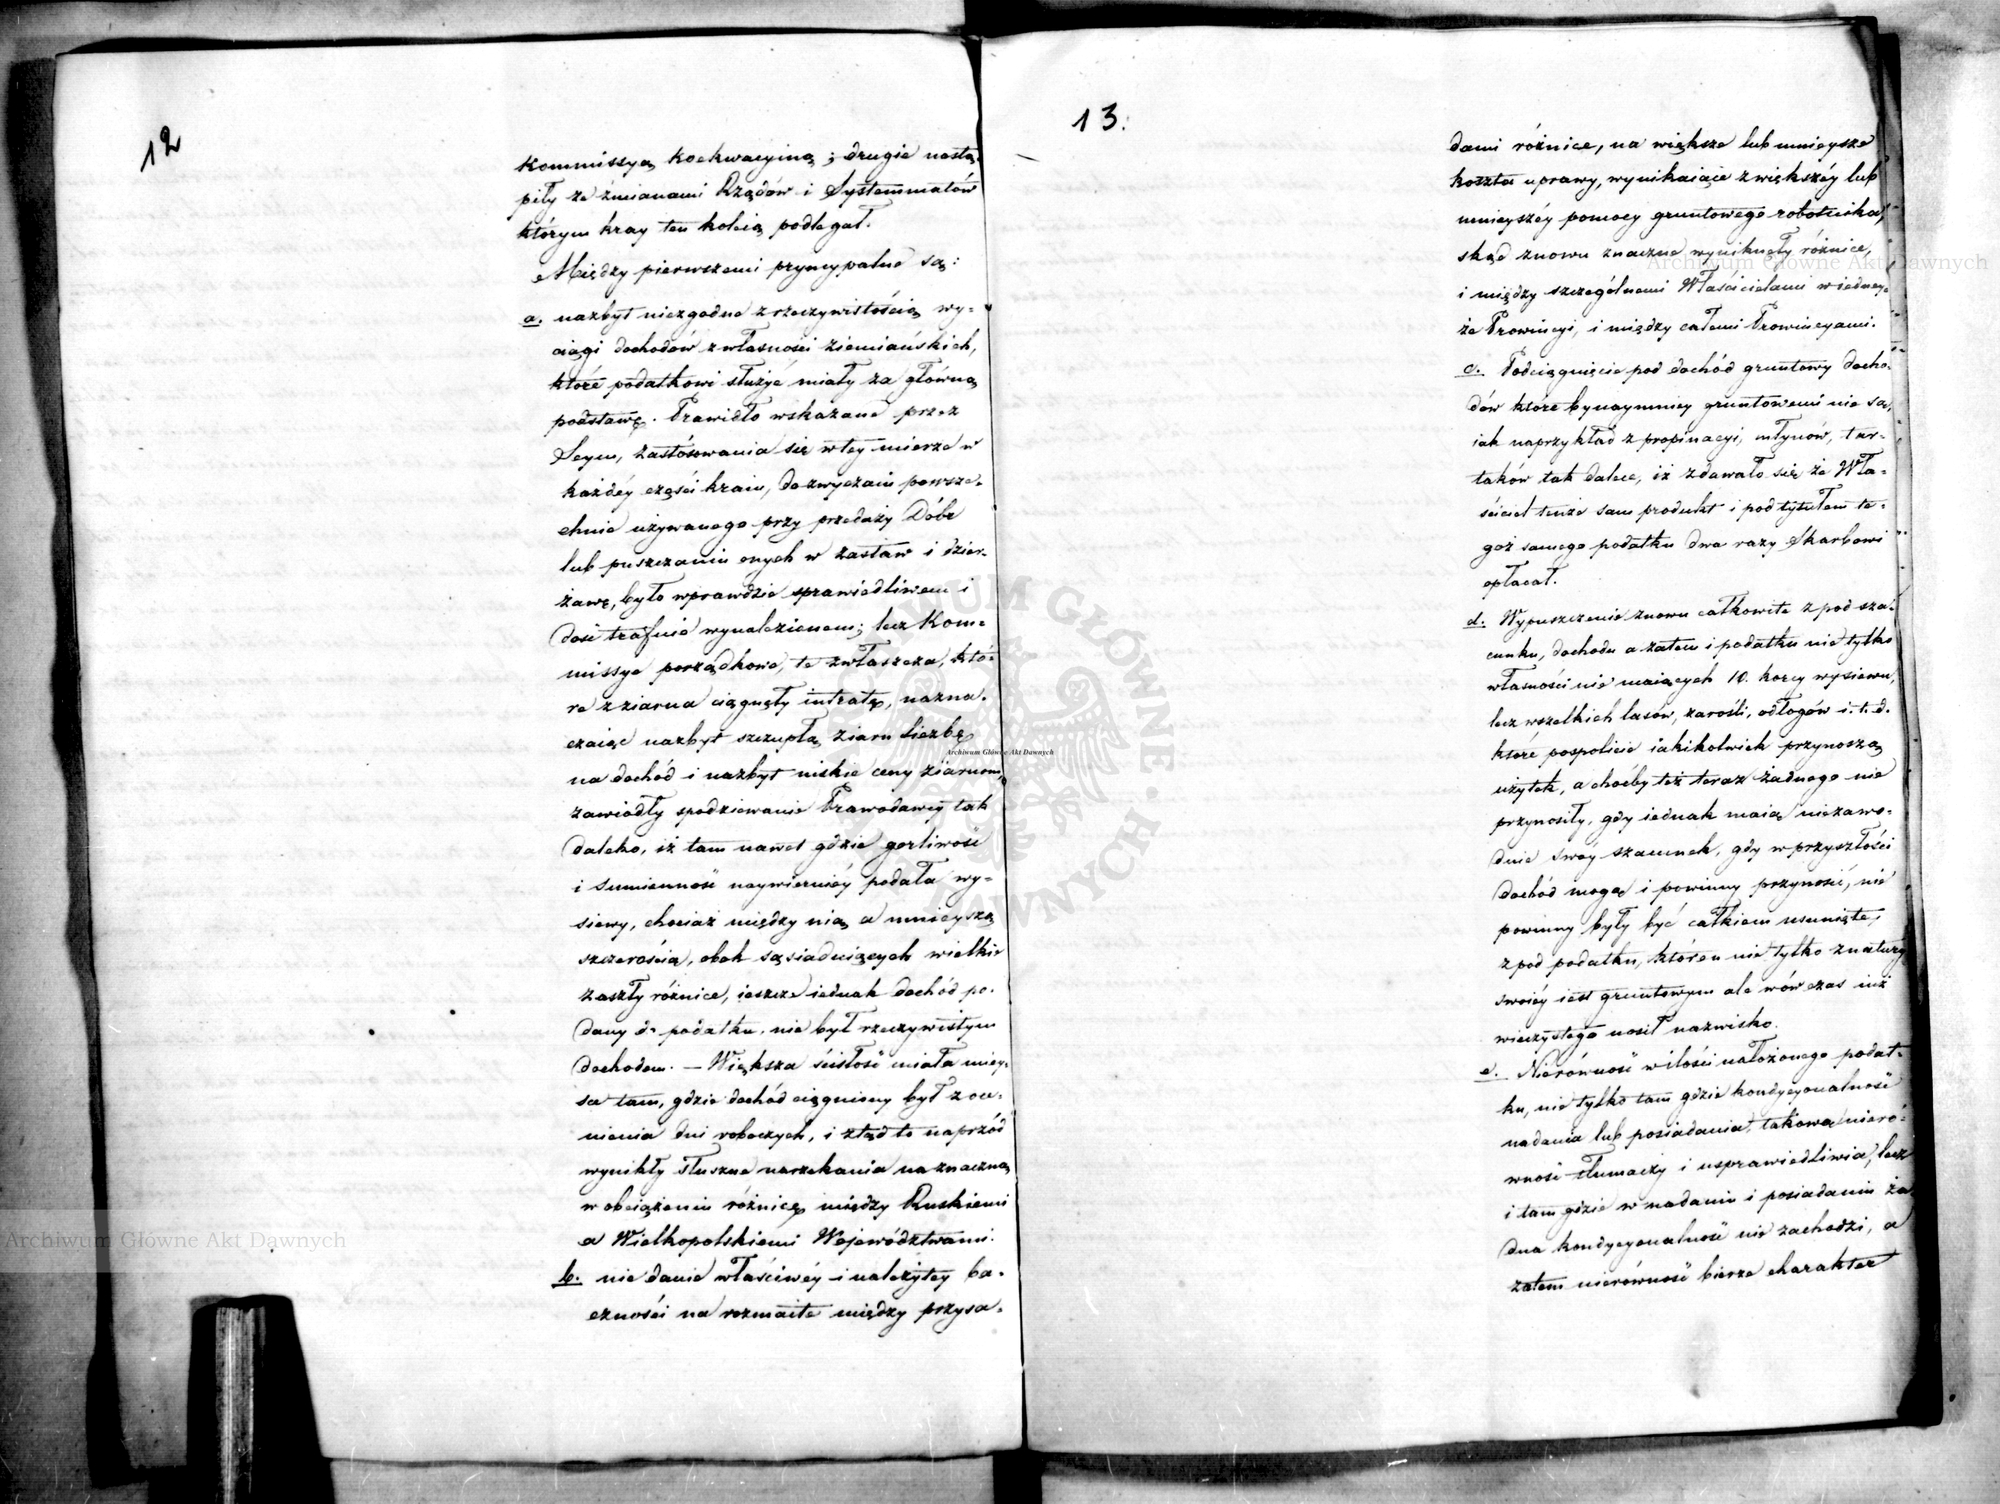 12
Kommissyą Koekwacyiną; drugie nastą-
piły ze zmianami Rządów i Systemmatów
którym kray ten koleią podlegał.
Między pierwszemi pryncypalne są:
a. nazbyt niezgodne z rzeczywistością wy-
ciągi dochodów z własności ziemiańskich,
które podatkowi służyć miały za główną
podstawę. Prawidło wskazane przez
Seym, zastósowania się w tey mierze w
każdéy części kraiu, do zwyczaiu powsze-
chnie używanego przy przedaży Dóbr
lub puszczaniu onych w zastaw i dzier-
żawę, było wprawdzie sprawiedliwem i
dość trafnie wynalezionem; lecz Kom-
missye porządkowe, te zwłaszcza, któ-
re z ziarna ciągnęły intratę, nazna-
czaiąc nazbyt szczupłą ziarn liczbę
na dochód i nazbyt niskie ceny ziarnom,
zawiodły spodziewanie Prawodawcy tak
daleko, iż tam nawet gdzie gorliwość
i sumienność naywierniéy podała wy-
siewy, chociaż między nią a mnieyszą
szczerością, obok sąsiaduiących wielkie
zaszły różnice, ieszcze iednak dochód po-
dany do podatku, nie był rzeczywistym
dochodem. — Większa ścisłość miała miey-
sce tam, gdzie dochód ciągniony był z oce-
nienia dni roboczych, i ztąd to naprzód
wynikły słuszne narzekania na znaczną
w obciążeniu różnicę między Ruskiemi
a Wielkopolskiemi Województwami.
b. nie danie właściwéy i należytey ba-
czności na rozmaite między przysa-
13.
dami różnice, na większe lub mnieysze
koszta uprawy, wynikaiące z większéy lub
mnieyszéy pomocy gruntowego robotnika,
skąd znowu znaczne wyniknęły różnice,
i między szczególnemi Właścicielami w iedney-
że Prowincyi, i między całemi Prowincyami.
c. Podciągnięcie pod dochód gruntowy docho-
dów które bynaymniey gruntowemi nie są,
iak naprzykład z propinacyi, młynów, tar-
taków tak dalece, iż zdawało się że Wła-
ściciel tenże sam produkt i pod tytułem te-
goż samego podatku dwa razy Skarbowi
opłacał.
d. Wypuszczenie znowu całkowite z pod sza-
cunku, dochodu a zatem i podatku nie tylko
własności nie maiących 10. korcy wysiewu,
lecz wszelkich lasów, zarośli, odłogów i. t. d.
które pospolicie iakikolwiek przynoszą
użytek, a choćby też teraz żadnego nie
przynosiły, gdy iednak maią niezawo-
dnie swóy szacunek, gdy w przyszłości
dochód mogą i powinny przynosić, nie
powinny były być całkiem usunięte,
z pod podatku, któren nie tylko z natury
swoiéy iest gruntowym ale wówczas iuż
wieczystego nosił nazwisko.
e. Nierówność w ilości nałożonego podat-
ku, nie tylko tam gdzie kondycyonalność
nadania lub posiadania, takową nieró-
wność tłumaczy i usprawiedliwia, lecz
i tam gdzie w nadaniu i posiadaniu ża-
dna kondycyonalność nie zachodzi, a
zatem nierówność bierze charakter
Archiwum Główne Akt Dawnych
Archiwum Główne Akt Dawnych
Archiwum Główne Akt Dawnych
ARCHIWUM GŁÓWNE AKT DAWNYCH